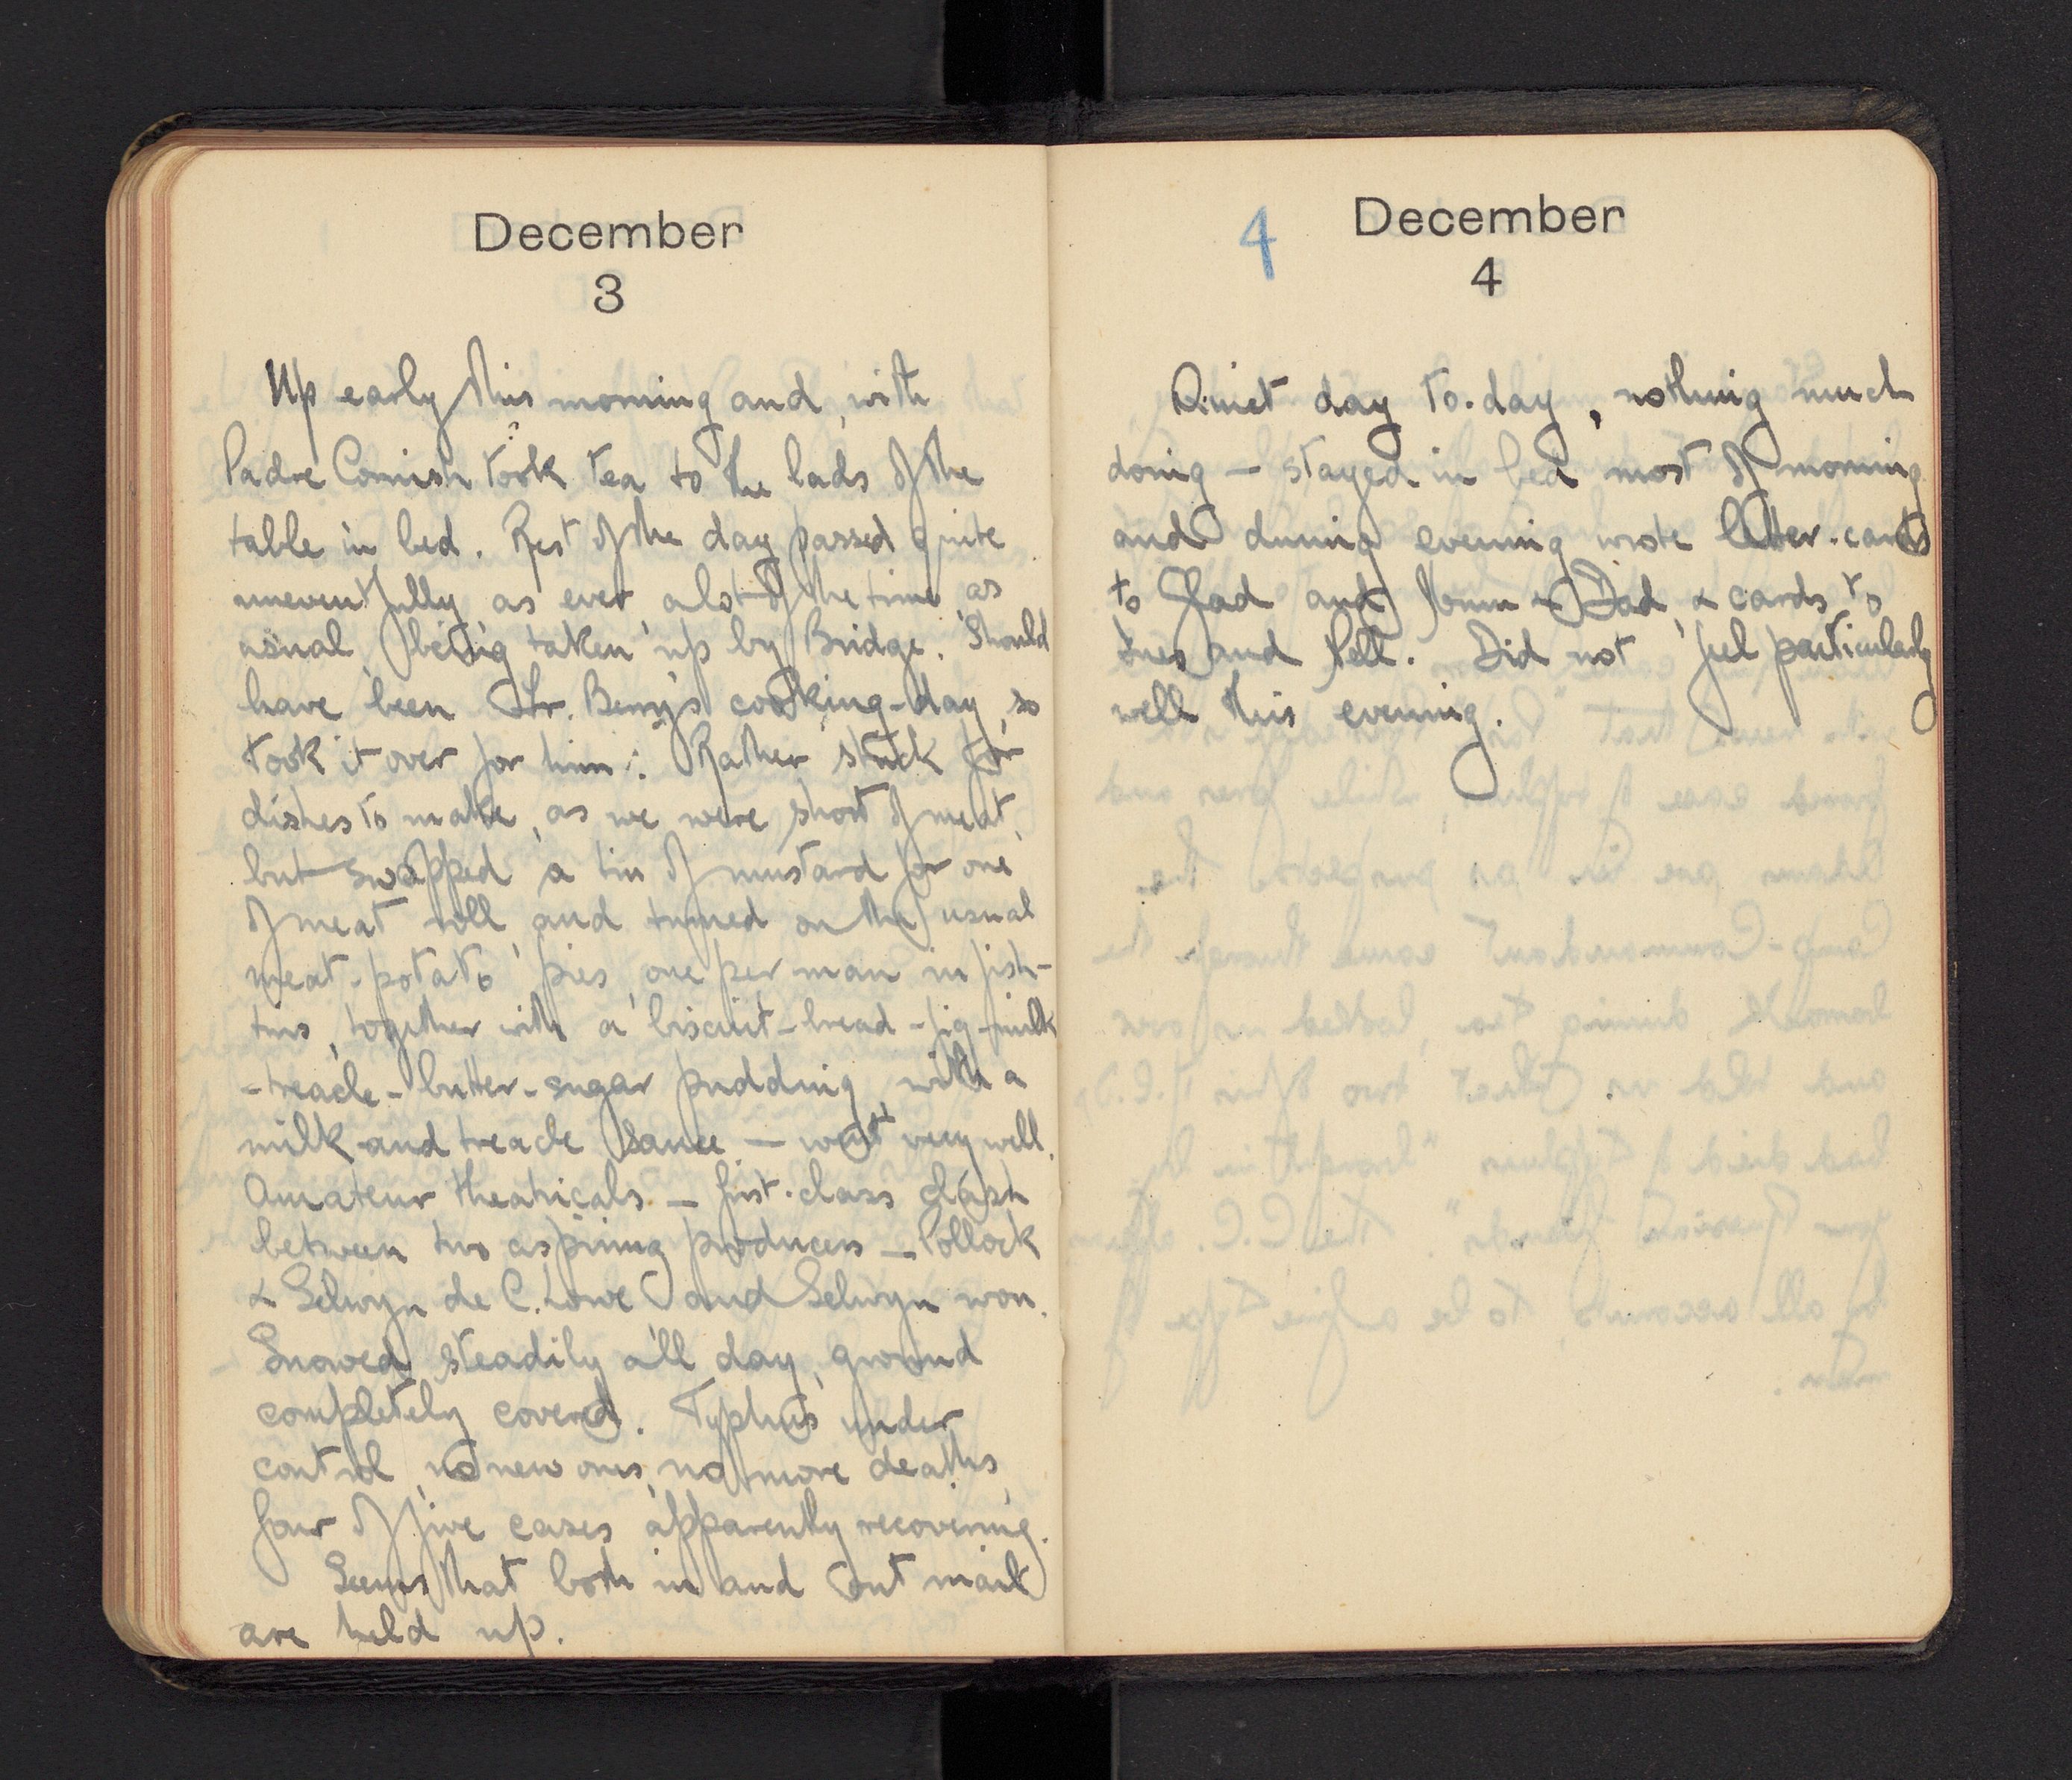 December
3
Up early this morning and, with
Padre Cornish took tea to the lads of the
table in bed. Rest of the day passed quite
uneventfully, as ever, a lot of the time, as
usual, being taken up by Bridge. Should
have been Lr. Berry's cooking-day, so
took it over for him. Rather stuck for
dishes to make, as we were short of meat,
but swapped a tin of mustard for one
of meat roll, and turned on the usual
meat-potato pies, one per man in fish-
tins, together with a biscuit-bread-fig-milk
-treacle-butter-sugar pudding, with a
milk and treacle sauce — went very well.
Amateur theatricals — first-class clash
between two aspiring producers — Pollock
& Selwyn de C. Lowe and Selwyn won.
Snowed steadily all day, ground
completely covered. Typhus under
control, no new ones, no more deaths,
four of five cases apparently recovering.
Seems that both in and out mail
are held up.
4
December
4
Quiet day to-day, nothing much
doing — stayed in bed most of morning
and during evening wrote letter-cards
to Glad and Mum & Dad, & cards to
and Nell. Did not feel particularly
well this evening.